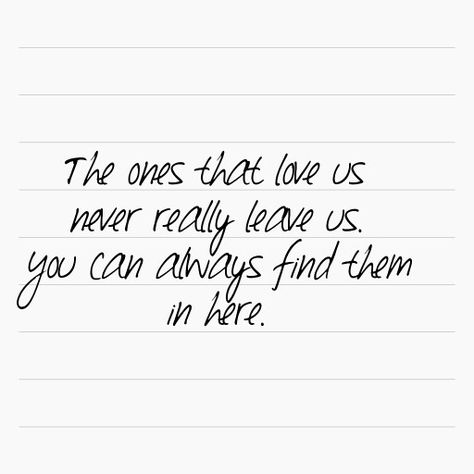 The ones that love us
never really leave us.
you can always find them
in here.